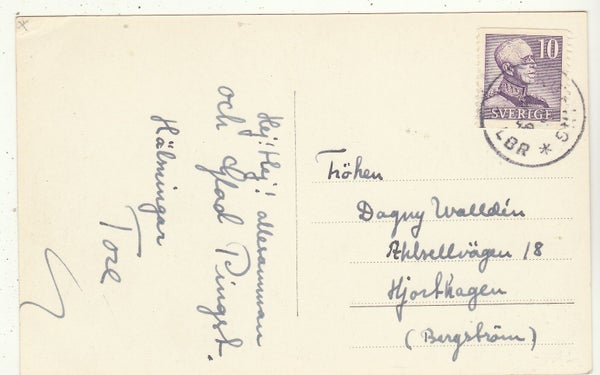 Hej! Hej! allesamman
och Glad Pingst.
Hälsningar
Tore
10
SVERIGE
LBR *
Fröken
Dagny Walldén
Ahlsellvägen 18
Hjorthagen
(Bergström)